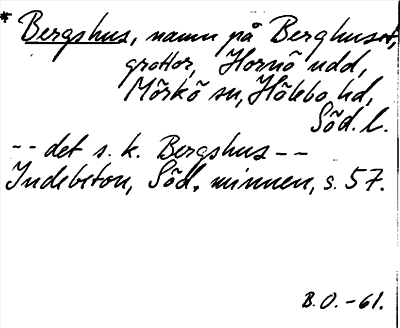 * Bergshus, namn på Berghuset,
grottor, Hornö udd,
Mörkö sn, Hölebo hd,
Söd. l.
-- det s. k. Bergshus --
Indebetou, Söd. minnen, s. 57.
B.O. -61.